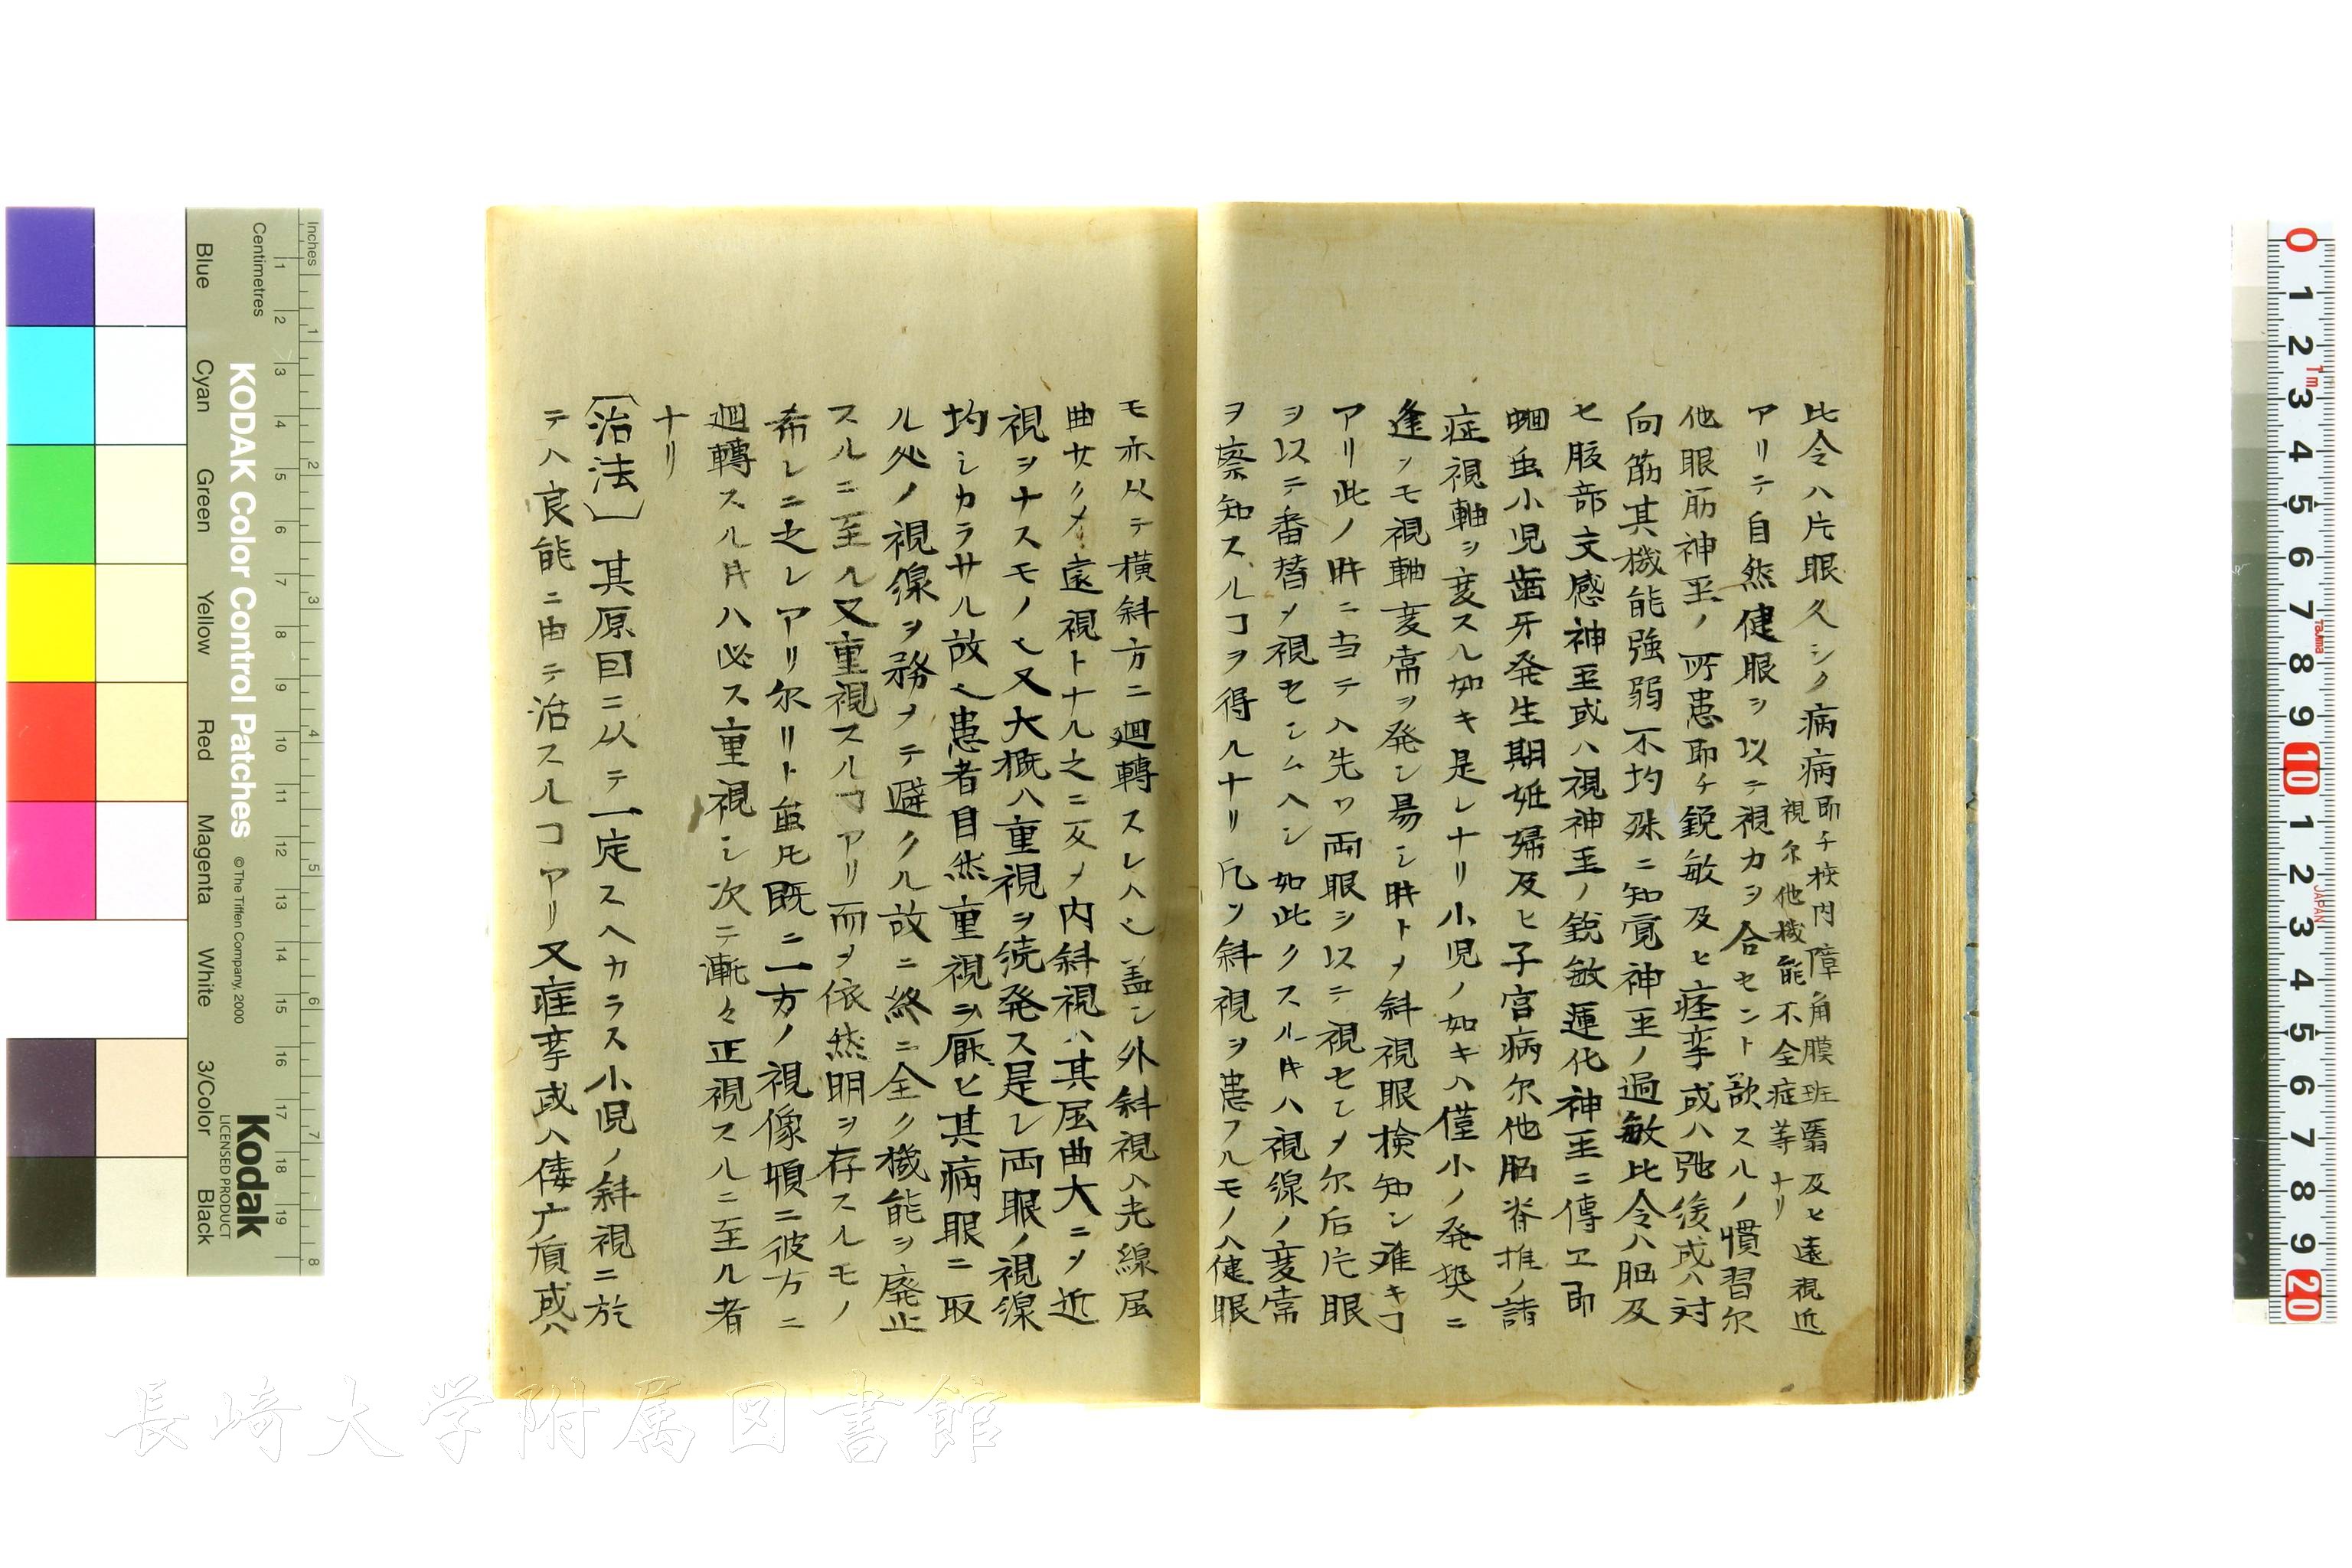 比令ハ片眼久シク病病即チ梜内障角膜班翳及ヒ遠視近
視尔他機能不全症等ナリ
アリテ自然健眼ヲ以テ視力ヲ合セント欲スルノ慣習尔
他眼筋神至ノ所患即チ鋭敏及ヒ痙挛或ハ弛緩或ハ対
向筋其機能強弱不均殊ニ知覚神至ノ過敏比令ハ脳及
ヒ腹部交感神至或ハ視神至ノ鋭敏運化神至ニ傳ヱ即
蛔虫小児歯牙発生期姙婦及ヒ子宮病尔他脳脊推ノ諸
症視軸ヲ変スル如キ是レナリ小児ノ如キハ僅小ノ発喫ニ
逢ソモ視軸変常ヲ発シ易シ時トメ斜視眼検知シ难キヿ
アリ此ノ時ニ当テハ先ツ両眼ヲ以テ視セシメ尔后片眼
ヲ以テ番替メ視セシムヘシ如此クスル片ハ視線ノ変常
ヲ察知スルヿヲ得ルナリ凡ソ斜視ヲ患フルモノハ健眼
モ亦从テ横斜方ニ廻轉スレハ也盖シ外斜視ハ光線屈
曲サクメ遠視トナル之ニ反メ内斜視ハ其屈曲大ニメ近
視ヲナスモノ也又大概ハ重視ヲ続発ス是レ両眼ノ視線
均シカラサル故也患者自然重視ヲ厭ヒ其病眼ニ取
ル処ノ視線ヲ務メテ避クル故ニ終ニ全ク機能ヲ廃止
スルニ至ル又重視スルヿアリ而メ依然明ヲ存スルモノ
希レニ之レアリ尓リト虽氏既ニ一方ノ視像頓ニ彼方ニ
廻轉スル片ハ必ス重視シ次テ漸々正視スルニ至ル者
ナリ
〔治法〕其原因ニ从テ一定スヘカラス小児ノ斜視ニ於
テハ良能ニ由テ治スルヿアリ又痙挛或ハ偻广質或ハ
KODAK Color Control Patches
© The Tiffen Company, 2000
Kodak
LICENSED PRODUCT
Inches
Centimetres
Blue
Cyan
Green
Yellow
Red
Magenta
White
3/Color
Black
1 2 3 4 5 6 7 8
1 2 3 4 5 6 7 8 9 10 11 12 13 14 15 16 17 18 19
0 1 2 3 4 5 6 7 8 9 10 1 2 3 4 5 6 7 8 9 20
1m
Tajima
JAPAN
長崎大学附属図書館